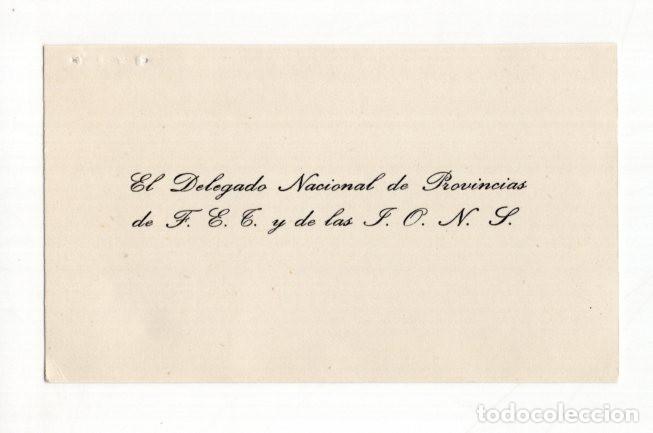 El Delegado Nacional de Provincias
de F. E. T. y de las J. O. N. S.
todocoleccion